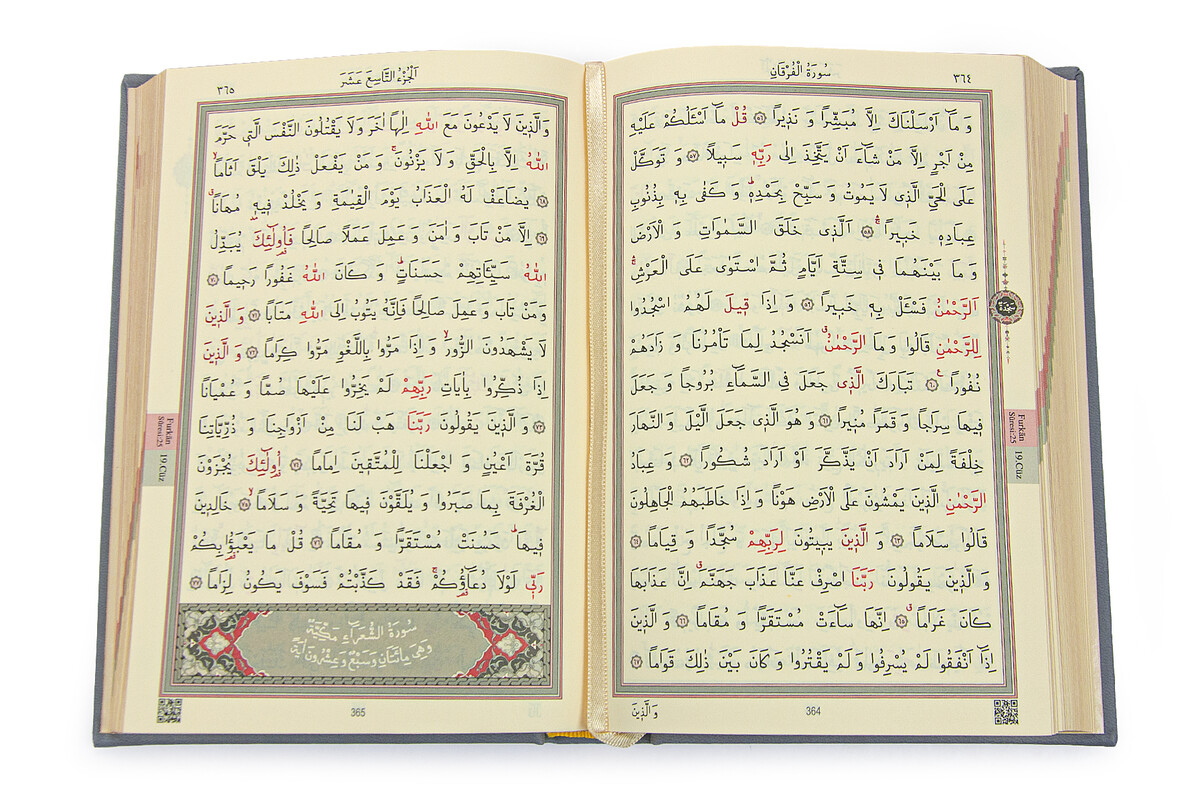 سُورَةُ الْفُرْقَانِ
٣٦٤
وَمَٓا اَرْسَلْنَاكَ اِلَّا مُبَشِّرًا وَ نَذٖيرًا ﴿٥٦﴾ قُلْ مَٓا اَسْـَٔلُكُمْ عَلَيْهِ
مِنْ اَجْرٍ اِلَّا مَنْ شَٓاءَ اَنْ يَتَّخِذَ اِلٰى رَبِّهٖ سَبٖيلًا ﴿٥٧﴾ وَ تَوَكَّلْ
عَلَى الْحَيِّ الَّذٖى لَا يَمُوتُ وَ سَبِّحْ بِحَمْدِهٖ وَ كَفٰى بِهٖ بِذُنُوبِ
عِبَادِهٖ خَبٖيرًا ﴿٥٨﴾ اَلَّذٖى خَلَقَ السَّمٰوَاتِ وَ الْاَرْضَ
وَ مَا بَيْنَهُمَا فٖى سِتَّةِ اَيَّامٍ ثُمَّ اسْتَوٰى عَلَى الْعَرْشِ
اَلرَّحْمٰنُ فَسْـَٔلْ بِهٖ خَبٖيرًا ﴿٥٩﴾ وَ اِذَا قٖيلَ لَهُمُ اسْجُدُوا
لِلرَّحْمٰنِ قَالُوا وَ مَا الرَّحْمٰنُ اَنَسْجُدُ لِمَا تَاْمُرُنَا وَ زَادَهُمْ
نُفُورًا ﴿٦٠﴾ تَبَارَكَ الَّذٖى جَعَلَ فِى السَّمَٓاءِ بُرُوجًا وَ جَعَلَ
فٖيهَا سِرَاجًا وَ قَمَرًا مُنٖيرًا ﴿٦١﴾ وَ هُوَ الَّذٖى جَعَلَ الَّيْلَ وَ النَّهَارَ
خِلْفَةً لِمَنْ اَرَادَ اَنْ يَذَّكَّرَ اَوْ اَرَادَ شُكُورًا ﴿٦٢﴾ وَ عِبَادُ
الرَّحْمٰنِ الَّذٖينَ يَمْشُونَ عَلَى الْاَرْضِ هَوْنًا وَ اِذَا خَاطَبَهُمُ الْجَاهِلُونَ
قَالُوا سَلَامًا ﴿٦٣﴾ وَ الَّذٖينَ يَبٖيتُونَ لِرَبِّهِمْ سُجَّدًا وَ قِيَامًا ﴿٦٤﴾
وَ الَّذٖينَ يَقُولُونَ رَبَّنَا اصْرِفْ عَنَّا عَذَابَ جَهَنَّمَ اِنَّ عَذَابَهَا
كَانَ غَرَامًا ﴿٦٥﴾ اِنَّهَا سَٓاءَتْ مُسْتَقَرًّا وَ مُقَامًا ﴿٦٦﴾ وَ الَّذٖينَ
اِذَٓا اَنْفَقُوا لَمْ يُسْرِفُوا وَ لَمْ يَقْتُرُوا وَ كَانَ بَيْنَ ذٰلِكَ قَوَامًا ﴿٦٧﴾
وَ الَّذٖينَ
364
سَجْدَة
Furkân
Sûresi:25
19.Cüz
اَلْجُزْءُ التَّاسِعَ عَشَرَ
٣٦٥
وَالَّذٖينَ لَا يَدْعُونَ مَعَ اللّٰهِ اِلٰهًا اٰخَرَ وَلَا يَقْتُلُونَ النَّفْسَ الَّتٖى حَرَّمَ
اللّٰهُ اِلَّا بِالْحَقِّ وَ لَا يَزْنُونَ وَ مَنْ يَفْعَلْ ذٰلِكَ يَلْقَ اَثَامًا
﴿٦٨﴾ يُضَاعَفْ لَهُ الْعَذَابُ يَوْمَ الْقِيٰمَةِ وَ يَخْلُدْ فٖيهٖ مُهَانًا
﴿٦٩﴾ اِلَّا مَنْ تَابَ وَ اٰمَنَ وَ عَمِلَ عَمَلًا صَالِحًا فَاُولٰٓئِكَ يُبَدِّلُ
اللّٰهُ سَيِّـَٔاتِهِمْ حَسَنَاتٍ وَ كَانَ اللّٰهُ غَفُورًا رَحٖيمًا ﴿٧٠﴾
وَ مَنْ تَابَ وَ عَمِلَ صَالِحًا فَاِنَّهُ يَتُوبُ اِلَى اللّٰهِ مَتَابًا ﴿٧١﴾ وَ الَّذٖينَ
لَا يَشْهَدُونَ الزُّورَ وَ اِذَا مَرُّوا بِاللَّغْوِ مَرُّوا كِرَامًا ﴿٧٢﴾ وَ الَّذٖينَ
اِذَا ذُكِّرُوا بِاٰيَاتِ رَبِّهِمْ لَمْ يَخِرُّوا عَلَيْهَا صُمًّا وَ عُمْيَانًا
﴿٧٣﴾ وَ الَّذٖينَ يَقُولُونَ رَبَّنَا هَبْ لَنَا مِنْ اَزْوَاجِنَا وَ ذُرِّيَّاتِنَا
قُرَّةَ اَعْيُنٍ وَ اجْعَلْنَا لِلْمُتَّقٖينَ اِمَامًا ﴿٧٤﴾ اُولٰٓئِكَ يُجْزَوْنَ
الْغُرْفَةَ بِمَا صَبَرُوا وَ يُلَقَّوْنَ فٖيهَا تَحِيَّةً وَ سَلَامًا ﴿٧٥﴾ خَالِدٖينَ
فٖيهَا حَسُنَتْ مُسْتَقَرًّا وَ مُقَامًا ﴿٧٦﴾ قُلْ مَا يَعْبَؤُا بِكُمْ
رَبّٖى لَوْلَا دُعَٓاؤُكُمْ فَقَدْ كَذَّبْتُمْ فَسَوْفَ يَكُونُ لِزَامًا ﴿٧٧﴾
سُورَةُ الشُّعَرَٓاءِ مَكِّيَّةٌ
وَهِىَ مِائَتَانِ وَسَبْعٌ وَعِشْرُونَ اٰيَةً
365
Furkân
Sûresi:25
19.Cüz